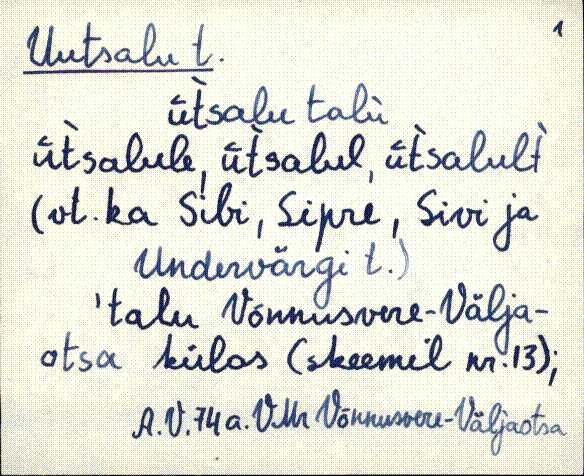 1
Uutsalu t.
ūt̀salu talù
ūt̀salule, ūt̀salul, ūt̀salult̀
(vt. ka Sibi, Sipre, Sivi ja
Undervärgi t.)
'talu Võnnusvere-Välja-
otsa külas (skeemil nr. 13);
A.V. 74 a. VMr Võnnusvere-Väljaotsa